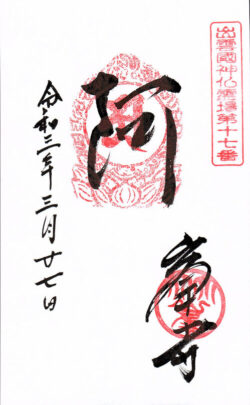 出雲國神仏霊場第十七番
阿
峯寺
令和三年三月廿七日